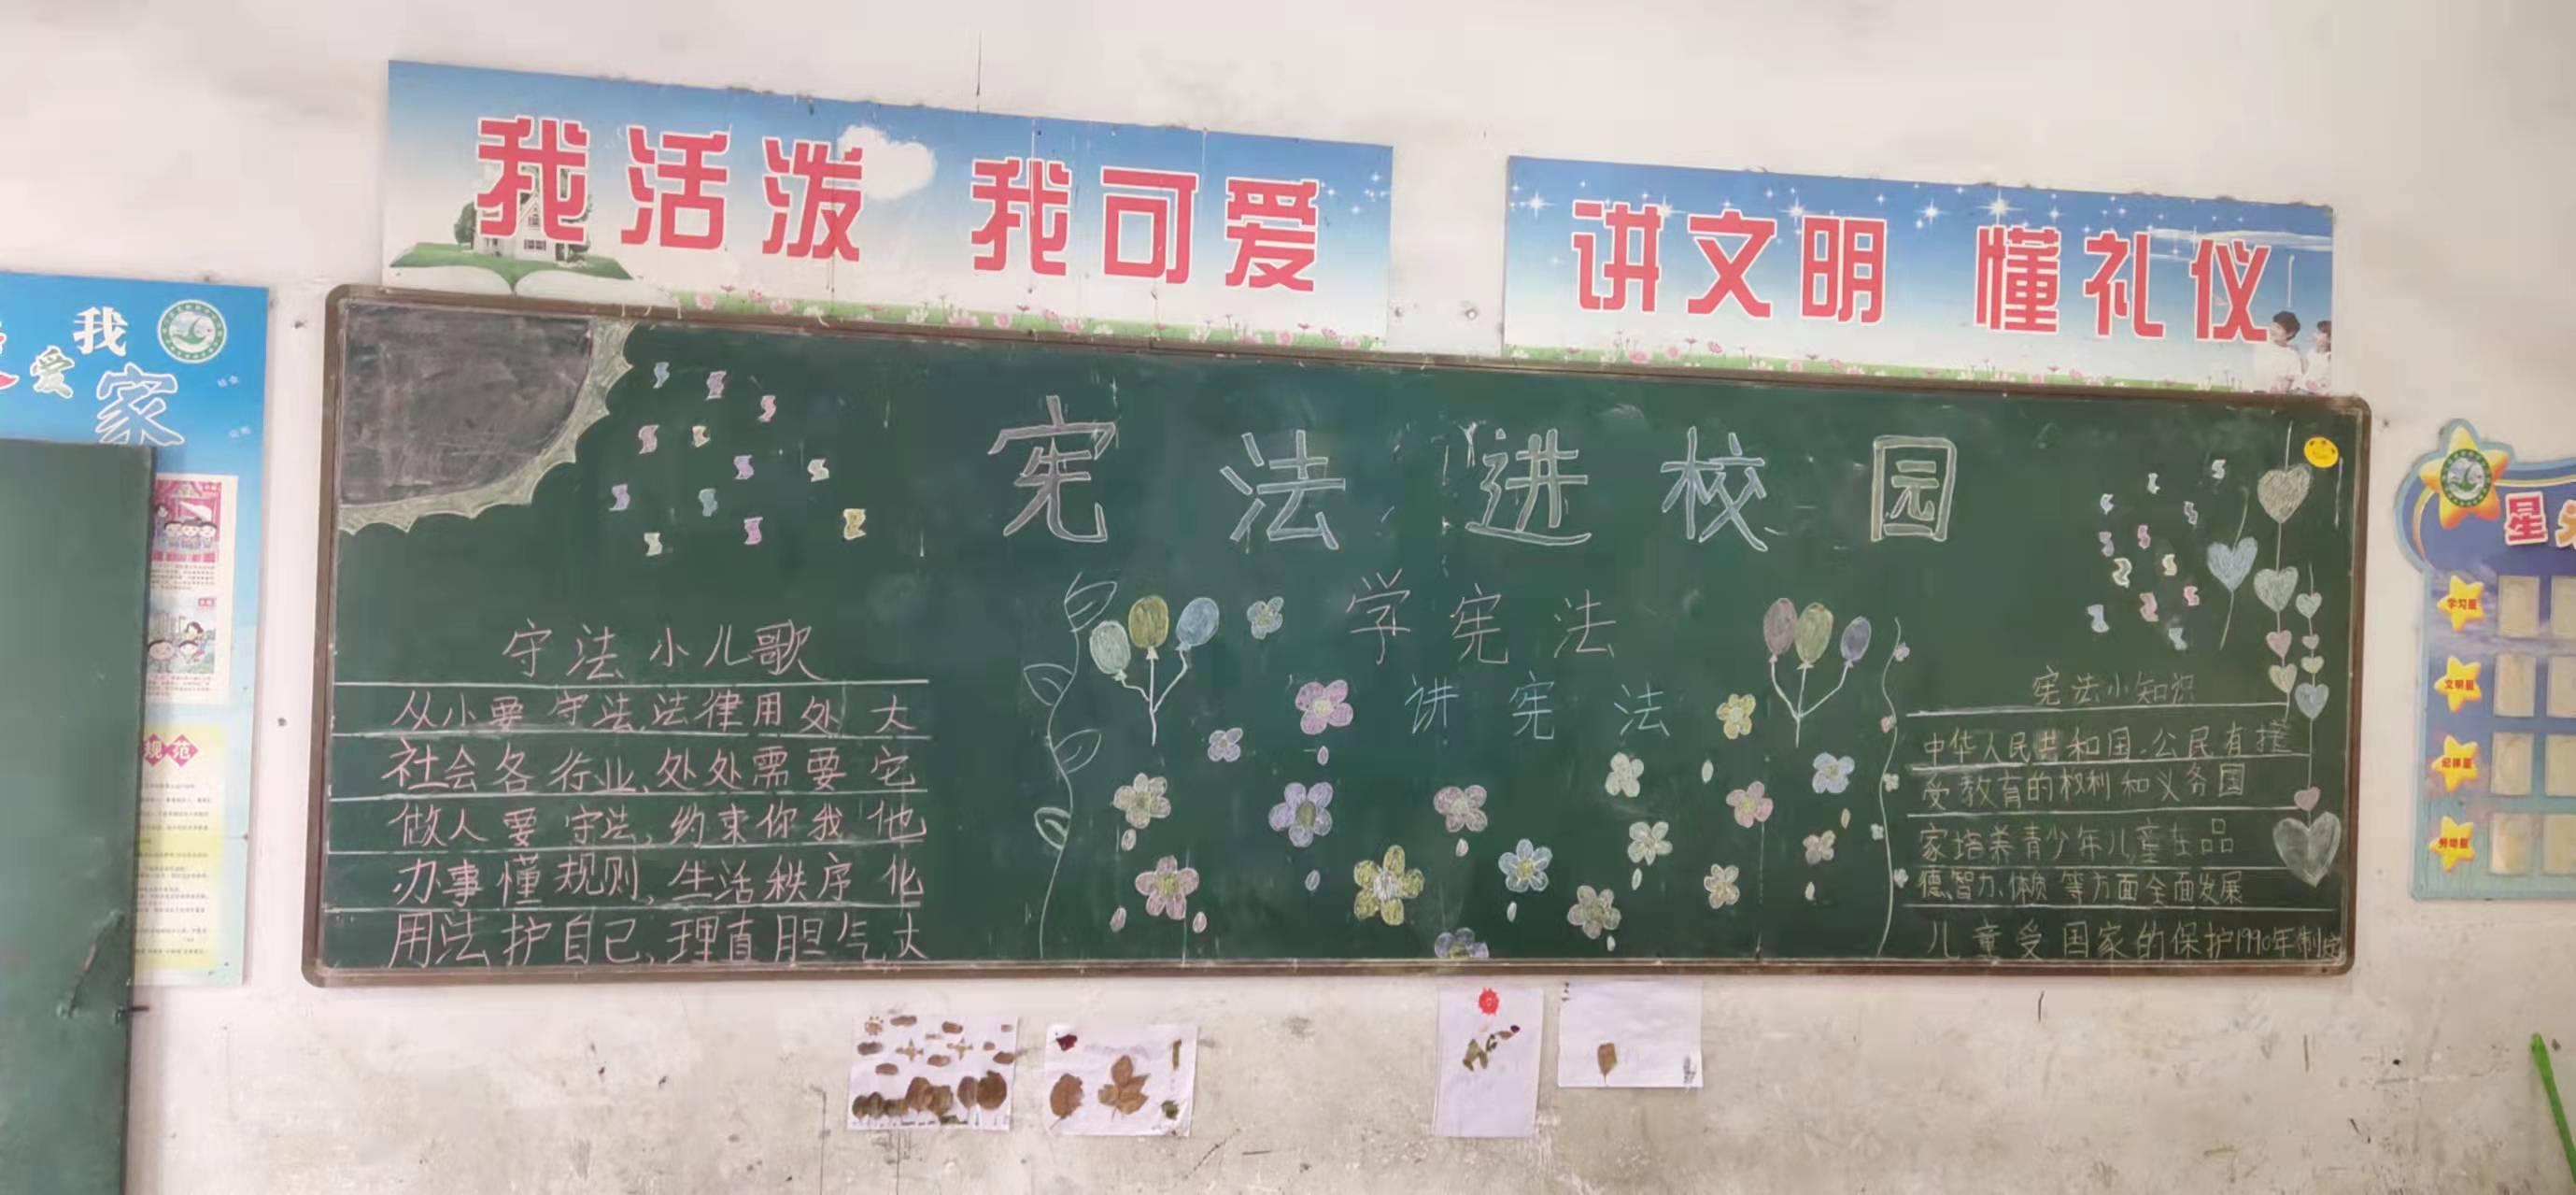 我活泼 我可爱
讲文明 懂礼仪
我
爱
家
规范
宪法进校园
学宪法
讲宪法
守法小儿歌
从小要守法,法律用处大
社会各行业、处处需要它
做人要守法,约束你我他
办事懂规则,生活秩序化
用法护自己,理直胆气大
宪法小知识
中华人民共和国.公民有
受教育的权利和义务国
家培养青少年儿童在品
德智力、体质等方面全面发展
儿童受国家的保护1990年制定
星
学习星
文明星
纪律星
劳动星